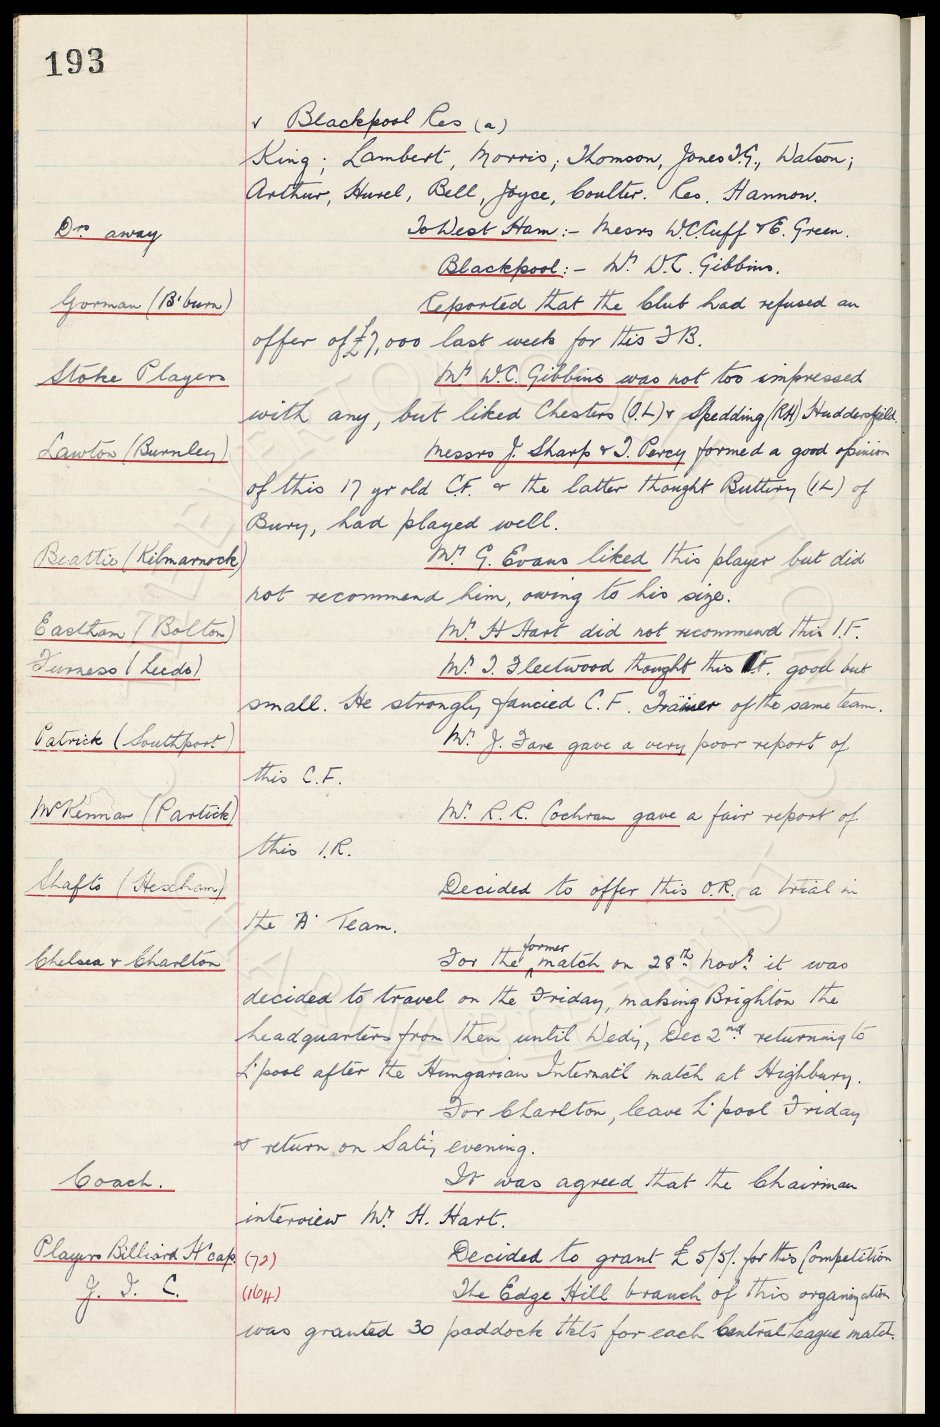 193
v Blackpool Res (a)
King; Lambert, Morris; Thomson, Jones T.G., Watson;
Arthur, Hurel, Bell, Joyce, Coulter. Res. Hannon.
Drs away To West Ham:- Messrs W.C. Cuff & E. Green.
Blackpool:- Mr W.C. Gibbins.
Gorman (B'burn) Reported that the Club had refused an
offer of £7,000 last week for this F.B.
Stoke Players Mr W.C. Gibbins was not too impressed
with any, but liked Chesters (O.L) & Spedding (RH) Huddersfield.
Lawton (Burnley) Messrs J. Sharp & T. Percy formed a good opinion
of this 17 yr old C.F. & the latter thought Buttery (IL) of
Bury, had played well.
Beattie (Kilmarnock) Mr G. Evans liked this player but did
not recommend him, owing to his size.
Eastham (Bolton) Mr H Hart did not recommend this I.F.
Furness (Leeds) Mr T. Fleetwood thought this I.F. good but
small. He strongly fancied C.F. Trainer of the same team.
Patrick (Southport) Mr J. Fare gave a very poor report of
this C.F.
McKennan (Partick) Mr R. R. Cochran gave a fair report of
this I.R.
Shafto (Hexham) Decided to offer this O.R. a trial in
the 'A' Team.
Chelsea & Charlton For the former match on 28th Novr it was
decided to travel on the Friday, making Brighton the
headquarters from then until Wedy, Dec 2nd returning to
L'pool after the Hungarian Internat'l match at Highbury.
For Charlton, leave L'pool Friday
& return on Sat'y evening.
Coach. It was agreed that the Chairman
interview Mr H. Hart.
Players Billiard H'cap. (72) Decided to grant £5/5/- for this Competition
J. T. C. (164) The Edge Hill branch of this organization
was granted 30 paddock tkts for each Central League match.